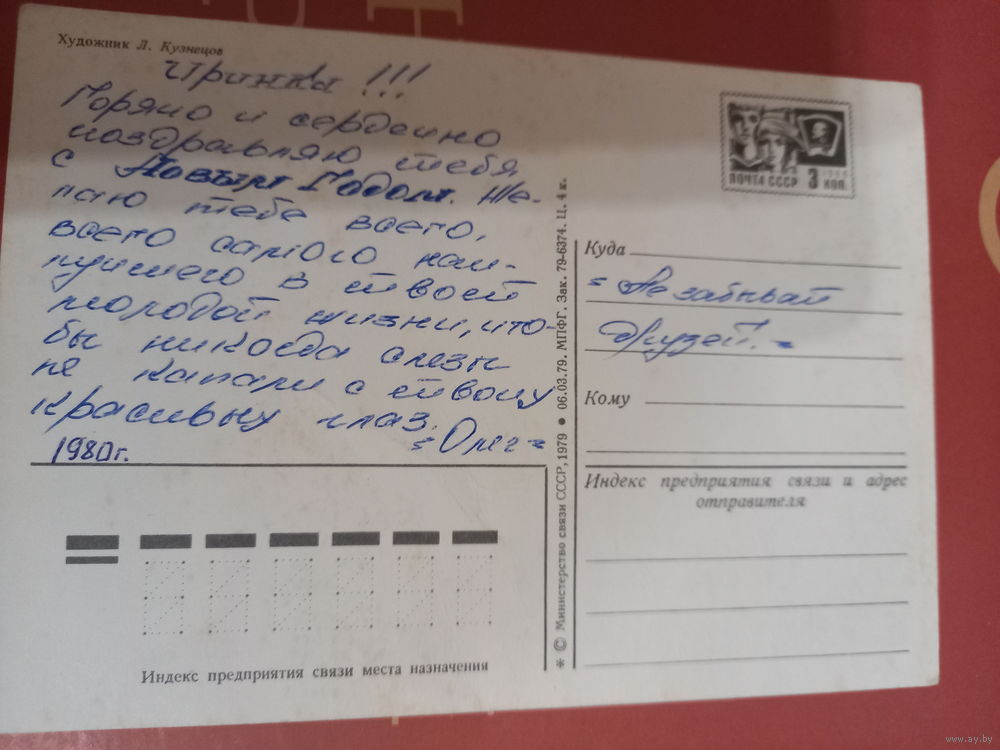 Художник Л. Кузнецов
Иринка !!!
Горячо и сердечно
поздравляю тебя
с Новым Годом. Же-
лаю тебе всего,
всего самого наи-
лучшего в твоей
молодой жизни, что-
бы никогда слезы
не капали с твоих
красивых глаз.
= Олег =
1980г.
Индекс предприятия связи места назначения
* © Министерство связи СССР, 1979 ● 06.03.79. МПФГ. Зак. 79-6374. Ц. 4 к.
ПОЧТА СССР 3 КОП.
Куда
= Не забывай
друзей. =
Кому
Индекс предприятия связи и адрес
отправителя
www.ay.by